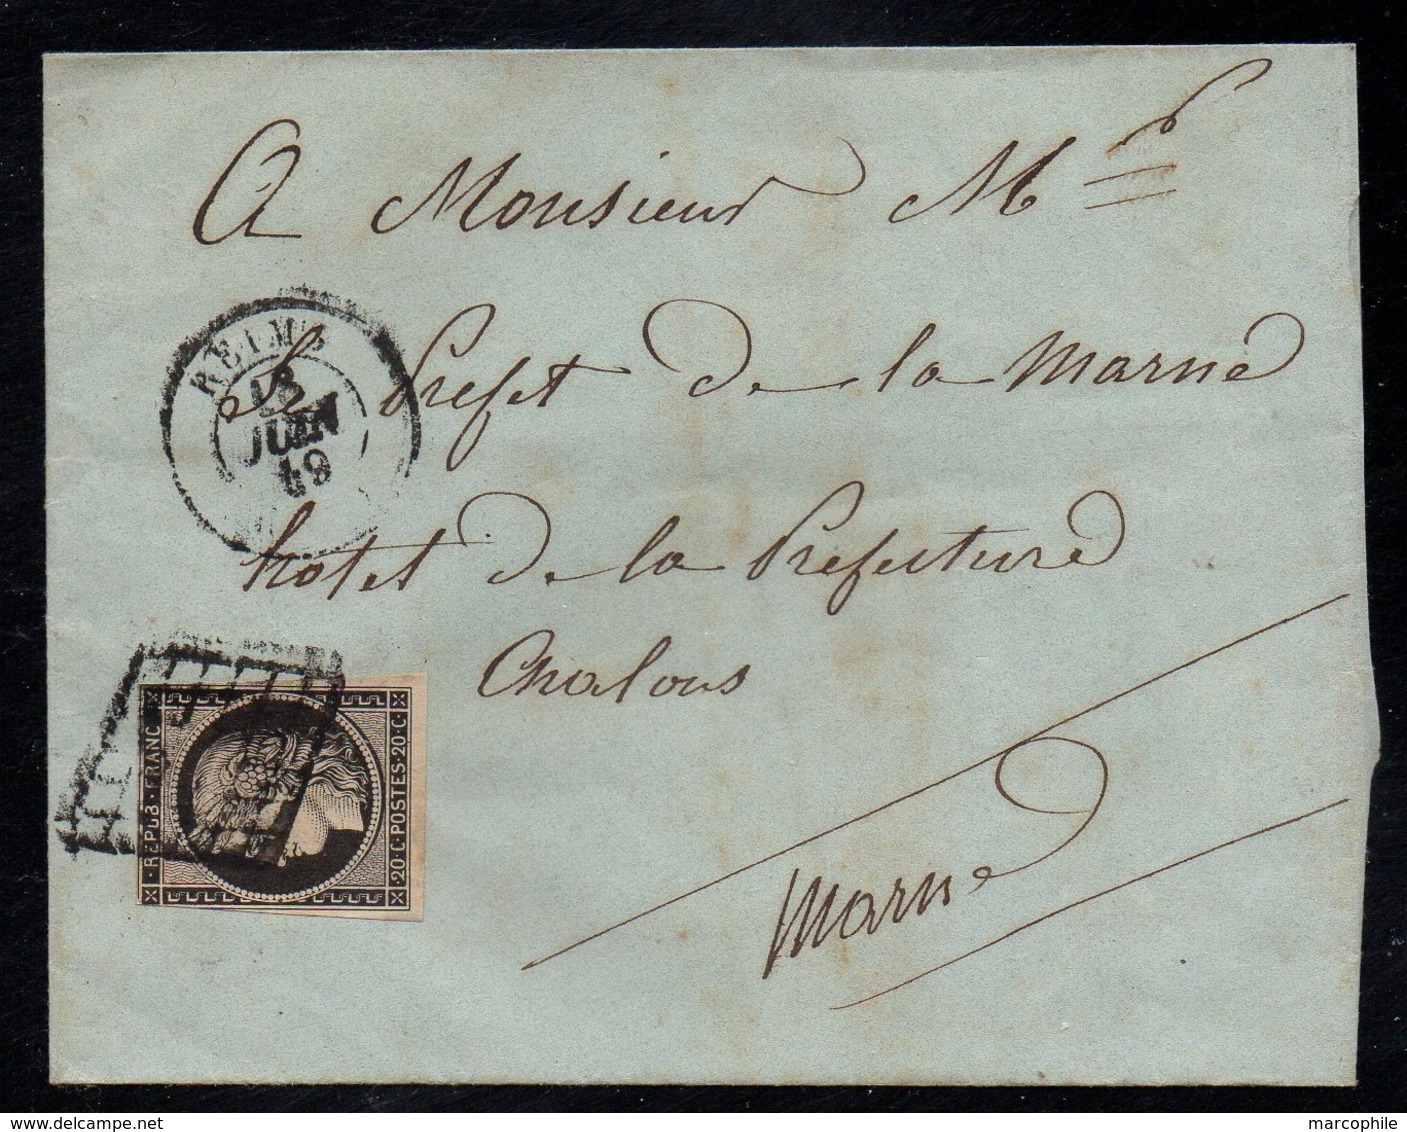 A Monsieur Mr
le Prefet de la Marne
hotel de la Prefecture
Chalons
Marne
REIMS
18
JUIN
49
REPUB · FRANC
20 · C · POSTES · 20 · C
marcophile